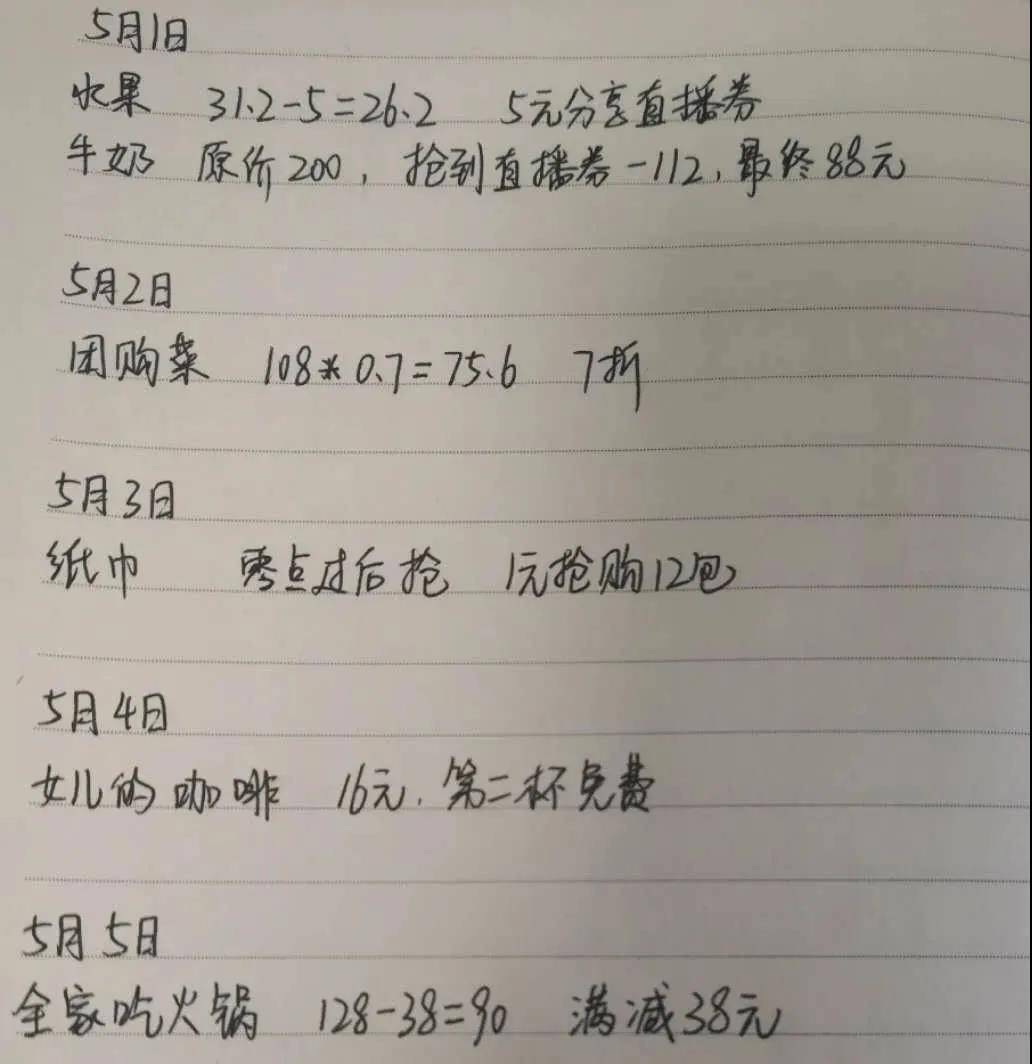 5月1日
水果 31.2-5=26.2 5元分享直播券
牛奶 原价200，抢到直播券-112，最终88元
5月2日
团购菜 108*0.7=75.6 7折
5月3日
纸巾 零点过后抢 1元抢购12包
5月4日
女儿的咖啡 16元，第二杯免费
5月5日
全家吃火锅 128-38=90 满减38元